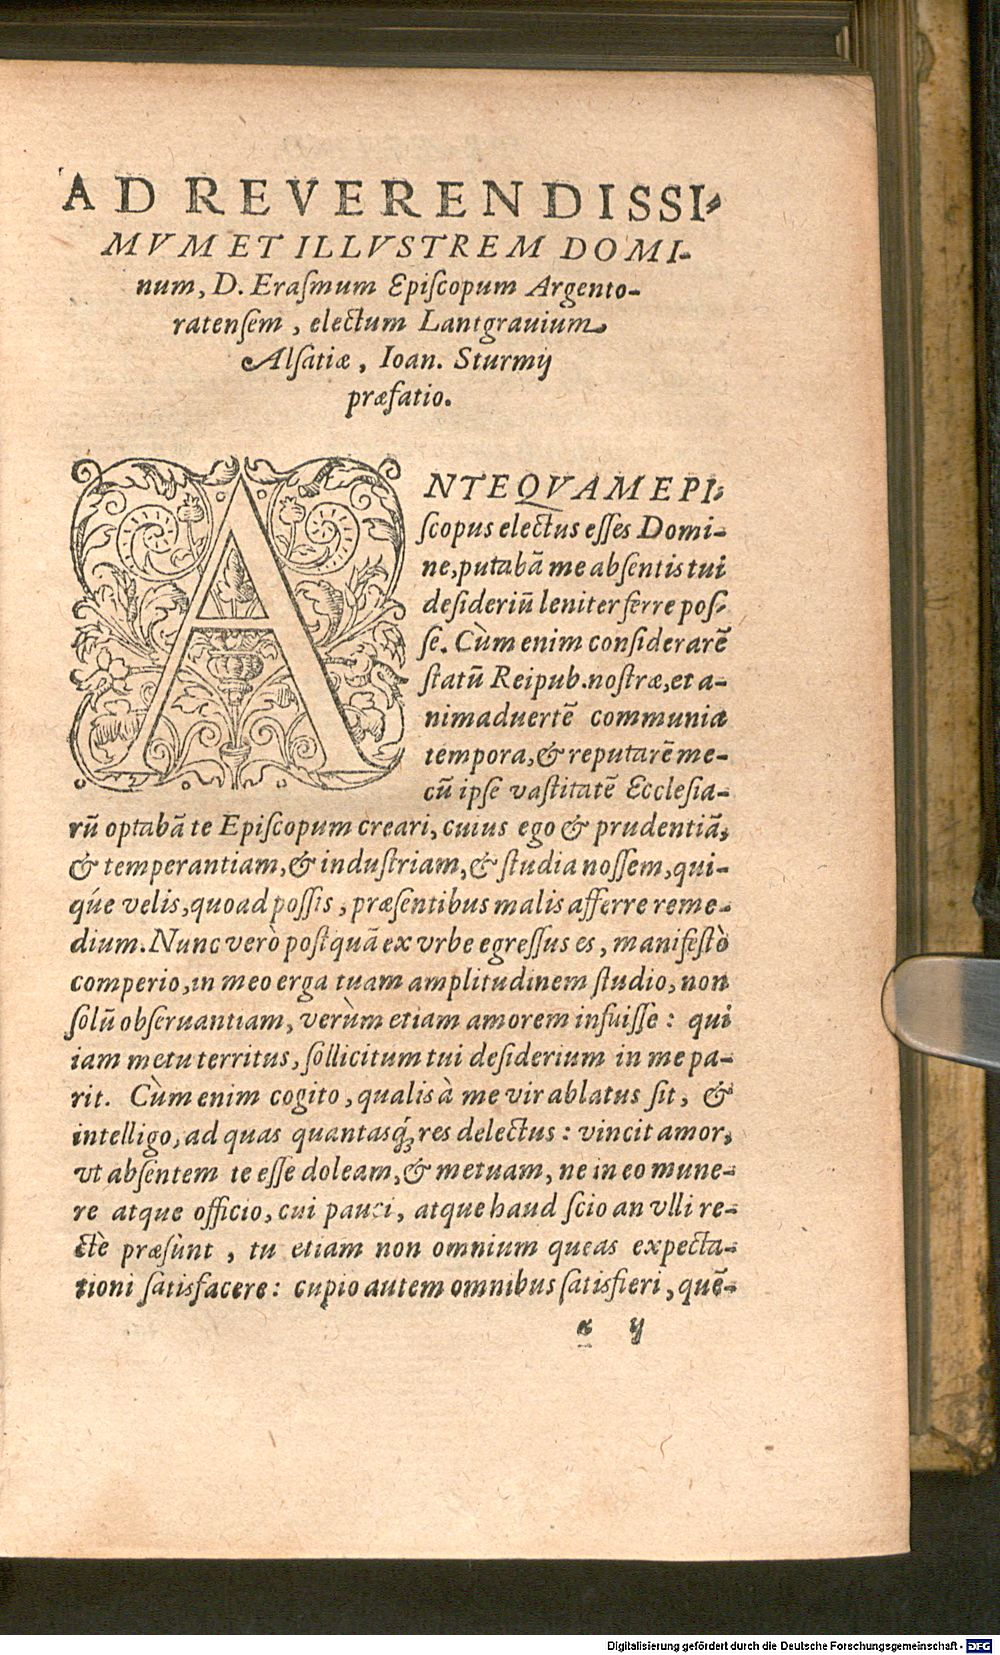 AD REVERENDISSI-
MVM ET ILLVSTREM DOMI-
num, D. Eraſmum Epiſcopum Argento-
ratenſem, electum Lantgrauium
Alſatiæ, Ioan. Sturmij
præfatio.
ANTEQVAM EPI-
ſcopus electus eſſes Domi-
ne, putabā me abſentis tui
deſideriū leniter ferre poſ-
ſe. Cùm enim conſiderarē
ſtatū Reipub. noſtræ, et a-
nimaduertē communia
tempora, & reputarē me-
cū ipſe vaſtitatē Eccleſia-
rū optabā te Epiſcopum creari, cuius ego & prudentiā,
& temperantiam, & induſtriam, & ſtudia noſſem, qui-
q́ue velis, quoad poſſis, præſentibus malis afferre reme-
dium. Nunc verò poſtquā ex vrbe egreſſus es, manifeſtò
comperio, in meo erga tuam amplitudinem ſtudio, non
ſolū obſeruantiam, verùm etiam amorem infuiſſe: qui
iam metu territus, ſollicitum tui deſiderium in me pa-
rit. Cùm enim cogito, qualis à me vir ablatus ſit, &
intelligo, ad quas quantasq́; res delectus: vincit amor,
vt abſentem te eſſe doleam, & metuam, ne in eo mune-
re atque officio, cui pauci, atque haud ſcio an vlli re-
ctè præſùnt, tu etiam non omnium queas expecta-
tioni ſatisfacere: cupio autem omnibus ſatisfieri, quē-
a ij
Digitalisierung gefördert durch die Deutsche Forschungsgemeinschaft - DFG